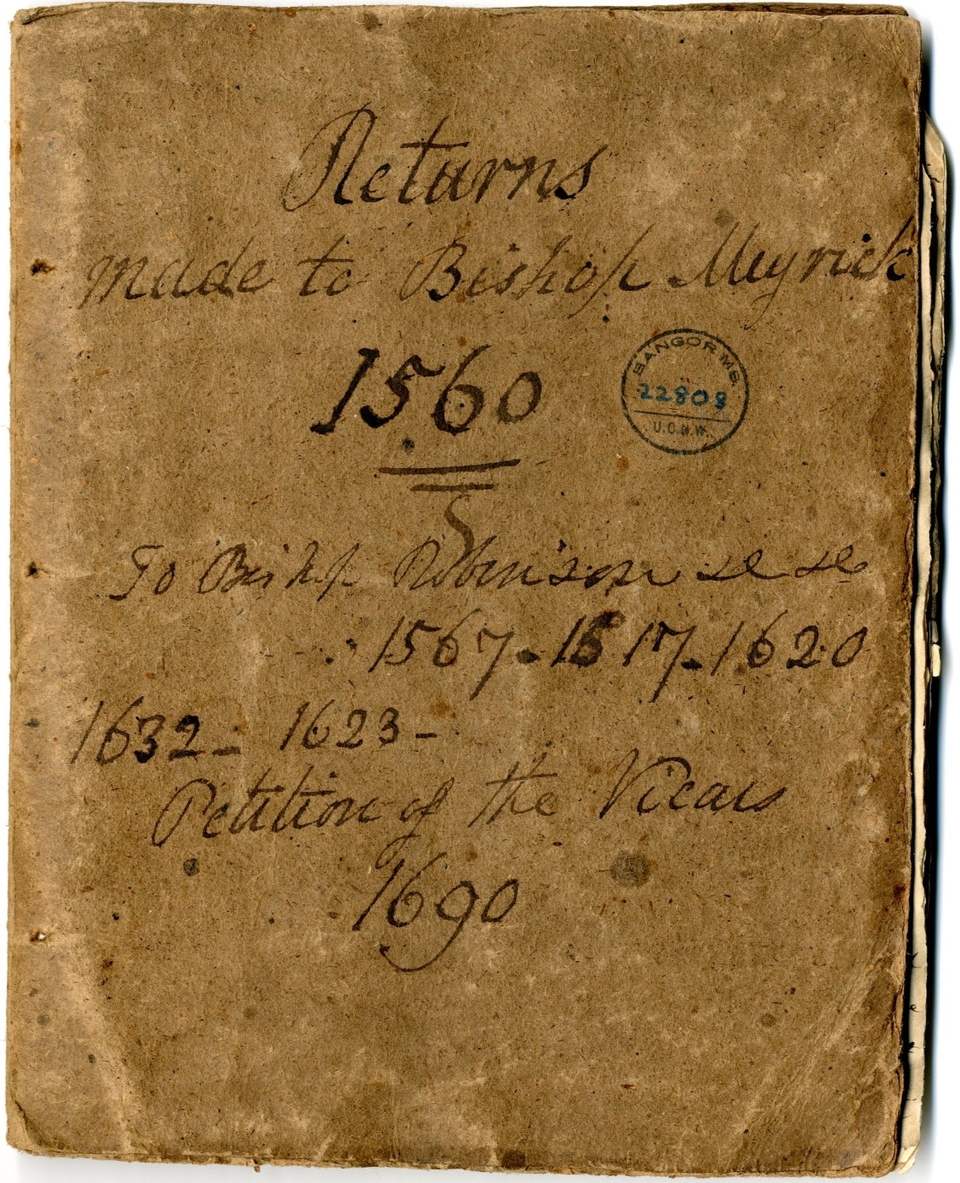 Returns
made to Bishop Meyrick
1560
BANGOR MS.
22808
U.C.N.W.
To Bishp Robinson &c &c
1567 - 1617 - 1620
1632 - 1623 -
Petition of the Vicars
1690